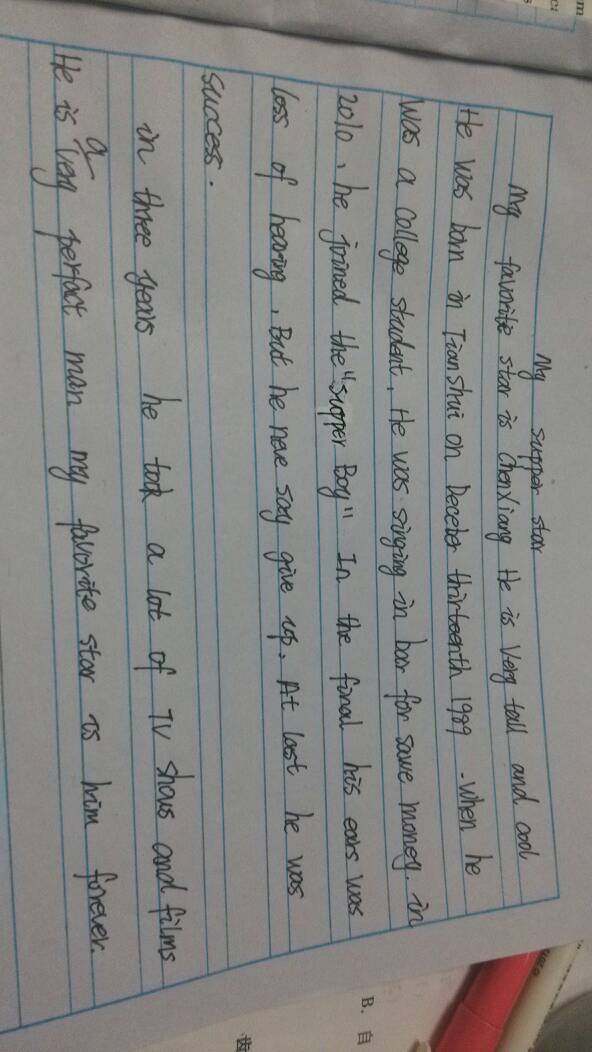 My supper star
My favorite star is ChenXiang He is Very tall and cool
He was born in TianShui on Deceber thirteenth 1989 . When he
was a college student. He was singing in bar for same money. in
2010 , he joined the "supper Boy" In the final his ears was
loss of hearing. But he neve say give up. At last he was
success.
in three years he took a lot of TV shows and films
He is a very perfact man my favorite star is him forever.
B. 自